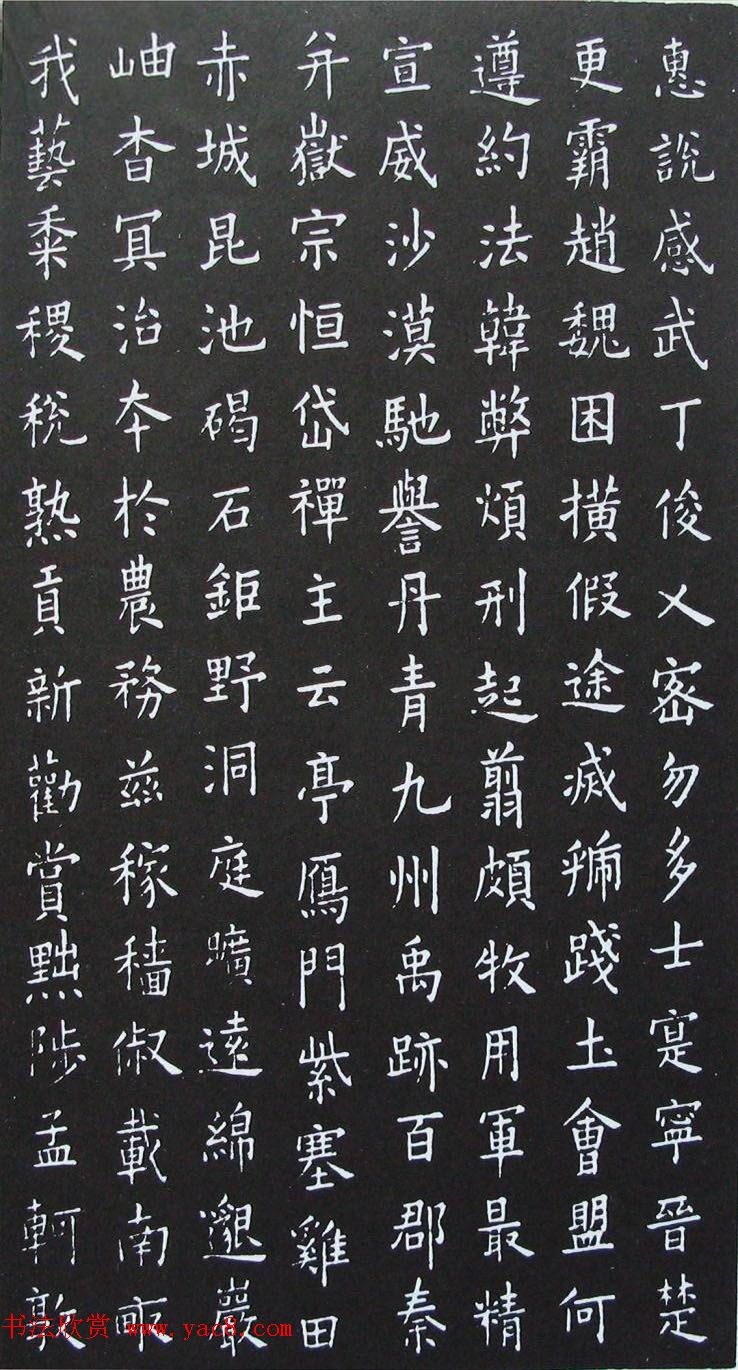 惠說感武丁俊乂密勿多士寔寧晉楚
更霸趙魏困橫假途滅虢踐土會盟何
遵約法韓弊煩刑起翦頗牧用軍最精
宣威沙漠馳譽丹青九州禹跡百郡秦
并嶽宗恒岱禪主云亭鴈門紫塞雞田
赤城昆池碣石鉅野洞庭曠遠綿邈巖
岫杳冥治夲於農務茲稼穡俶載南畝
我藝黍稷稅熟貢新勸賞黜陟孟軻敦
书法欣赏 www.yac8.com